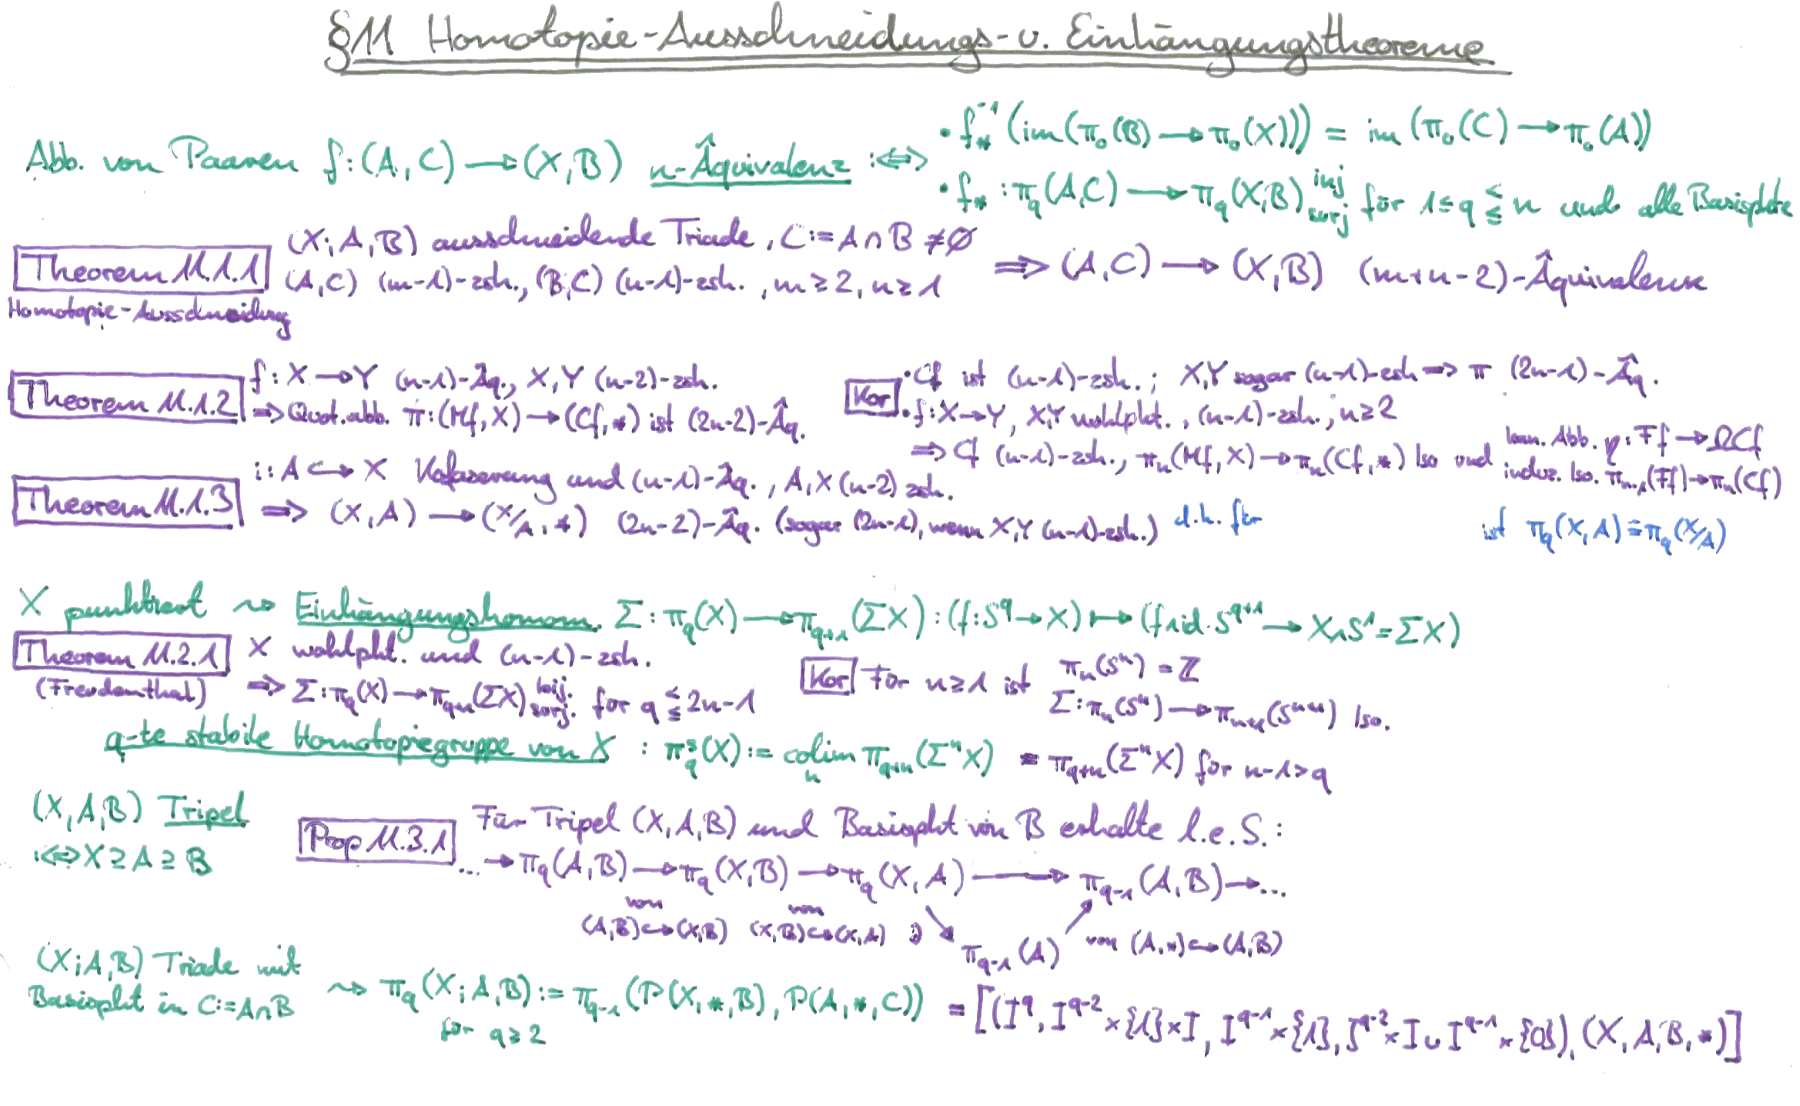 §11 Homotopie-Ausschneidungs- u. Einhängungstheoreme
Abb. von Paaren f:(A,C)→(X,B) n-Äquivalenz :⇔ • f⁻¹_*(im(π₀(B)→π₀(X))) = im(π₀(C)→π₀(A))
• f_*: π_q(A,C)→π_q(X,B) inj/surj für 1≤q ≤/≦ n und alle Basispkte
Theorem 11.1.1 (X;A,B) ausschneidende Triade, C:=A∩B≠∅
(A,C) (m-1)-zsh., (B,C) (n-1)-zsh., m≥2, n≥1 ⇒ (A,C)→(X,B) (m+n-2)-Äquivalenz
Homotopie-Ausschneidung
Theorem 11.1.2 f:X→Y (n-1)-Äq., X,Y (n-2)-zsh.
⇒ Quot.abb. π:(Mf,X)→(Cf,*) ist (2n-2)-Äq.
Kor • Cf ist (n-1)-zsh.; X,Y sogar (n-1)-zsh ⇒ π (2n-1)-Äq.
• f:X→Y, X,Y wohlpkt., (n-1)-zsh., n≥2
⇒ Cf (n-1)-zsh., π_n(Mf,X)→π_n(Cf,*) Iso und kan. Abb. η:Ff→ΩCf
induz. Iso. π_{n-1}(Ff)→π_n(Cf)
Theorem 11.1.3 i:A↪X Kofaserung und (n-1)-Äq., A,X (n-2) zsh.
⇒ (X,A)→(X/A,*) (2n-2)-Äq. (sogar (2n-1), wenn X,Y (n-1)-zsh.) d.h. für ist π_q(X,A)≅π_q(X/A)
X punktiert ⇝ Einhängungshomom. Σ:π_q(X)→π_{q+1}(ΣX):(f:S^q→X)↦(f∧id:S^{q+1}→X∧S¹=ΣX)
Theorem 11.2.1 X wohlpkt. und (n-1)-zsh.
(Freudenthal) ⇒ Σ:π_q(X)→π_{q+1}(ΣX) bij./surj. für q </≤ 2n-1
Kor Für n≥1 ist π_n(S^n)=ℤ
Σ:π_n(S^n)→π_{n+1}(S^{n+1}) Iso.
q-te stabile Homotopiegruppe von X : π^s_q(X):=colim_n π_{q+n}(Σ^nX) = π_{q+n}(Σ^nX) für n-1>q
(X,A,B) Tripel
:⇔ X⊇A⊇B
Prop 11.3.1 Für Tripel (X,A,B) und Basispkt von B erhalte l.e.S.:
...→π_q(A,B)→π_q(X,B)→π_q(X,A)→π_{q-1}(A,B)→...
von (A,B)↪(X,B) von (X,B)↪(X,A) ∂ π_{q-1}(A) von (A,*)↪(A,B)
(X;A,B) Triade mit
Basispkt in C:=A∩B ⇝ π_q(X;A,B):=π_{q-1}(P(X,*,B),P(A,*,C)) = [(I^q, I^{q-2}×{1}×I, I^{q-1}×{1}, J^{q-2}×I∪I^{q-1}×{0}),(X,A,B,*)]
für q≥2